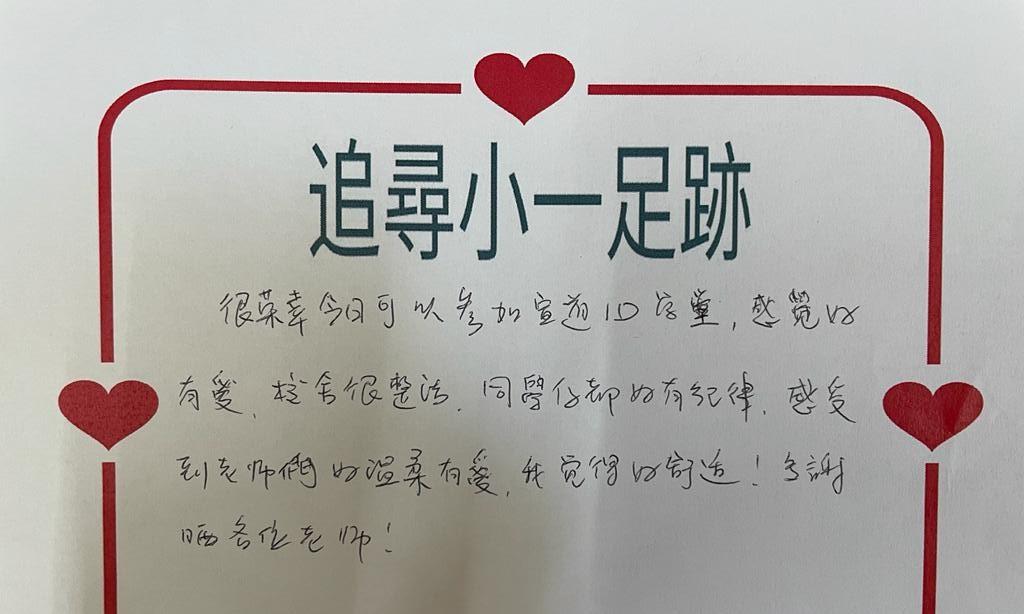 追尋小一足跡
很榮幸今日可以參加宣道 學堂,感覺好
有愛,校舍很整洁,同學仔都好有紀律,感受
到老师們好温柔有愛,我觉得好舒适!多謝
晒各位老师!